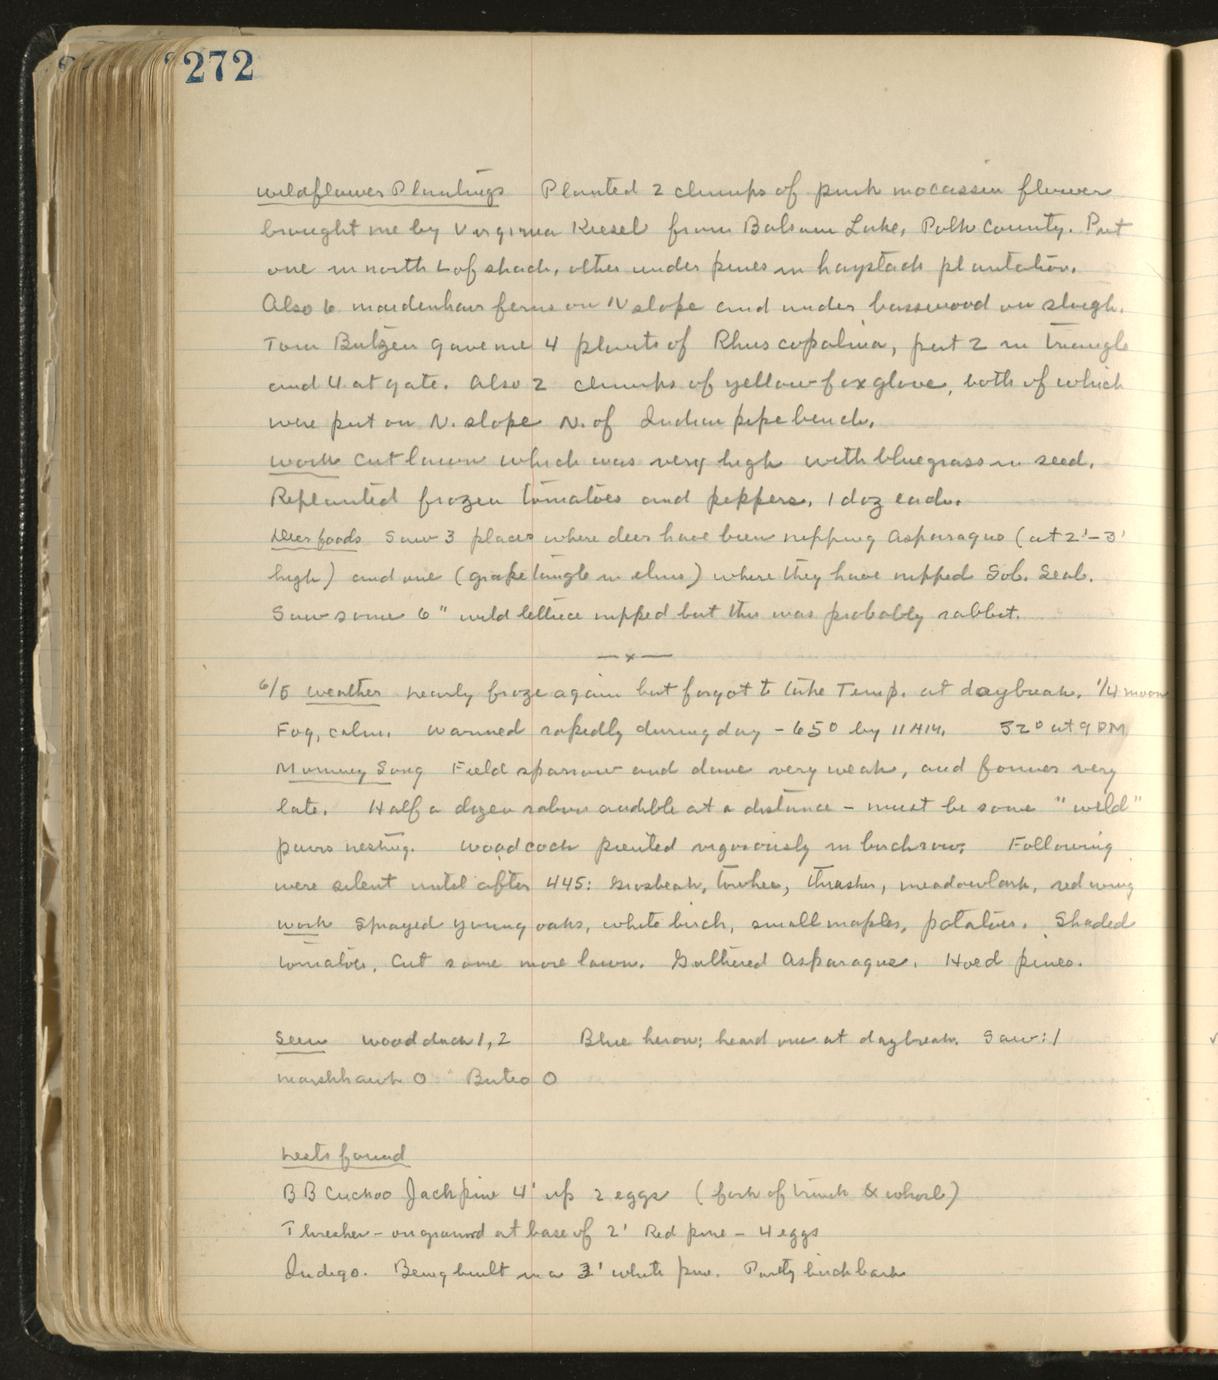 272
Wildflower Plantings Planted 2 clumps of pink mocassin flower
brought me by Virginia Kiesel from Balsam Lake, Polk County. Put
one in north L of shack, other under pines in haystack plantation.
Also 6 maidenhair ferns on N slope and under basswood on slough.
Tom Butzen gave me 4 plants of Rhus copalina, put 2 in triangle
and 4 at gate. Also 2 clumps of yellow foxglove, both of which
were put on N. slope N. of Indian pipe bench.
Work Cut lawn which was very high with bluegrass in seed.
Replanted frozen tomatoes and peppers, 1 doz each.
Deer foods Saw 3 places where deer have been nipping Asparagus (at 2'-3'
high) and one (grape tangle in elms) where they have nipped Sol. Seal.
Saw some 6" wild lettuce nipped but this was probably rabbit.
—x—
6/5 Weather nearly froze again but forgot to take Temp. at daybreak. 1/4 moon
Fog, calm. Warmed rapidly during day - 65° by 11 AM. 52° at 9 PM
Morning Song Field sparrow and dove very weak, and former very
late. Half a dozen robins audible at a distance - must be some "wild"
pairs nesting. Woodcock peented vigorously in birchrow. Following
were silent until after 445: Grosbeak, towhee, thrasher, meadowlark, redwing
Work Sprayed young oaks, white birch, small maples, potatoes. Shaded
tomatoes. Cut some more lawn. Gathered Asparagus. Hoed pines.
Seen Wood duck 1, 2 Blue heron; heard one at daybreak. Saw: 1
marshhawk 0 Buteo 0
Nests found
BB Cuckoo Jackpine 4' up 2 eggs (fork of trunk & whorl)
Thrasher - on ground at base of 2' Red pine - 4 eggs
Indigo. Being built in a 3' white pine. Partly birchbark